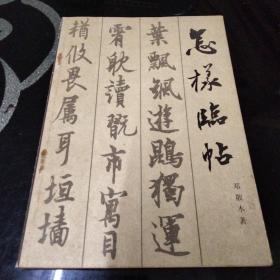 怎樣臨帖
邓散木著
葉飄颻遊鵾獨運
霄耽讀翫市寓目
輶攸畏屬耳垣墻